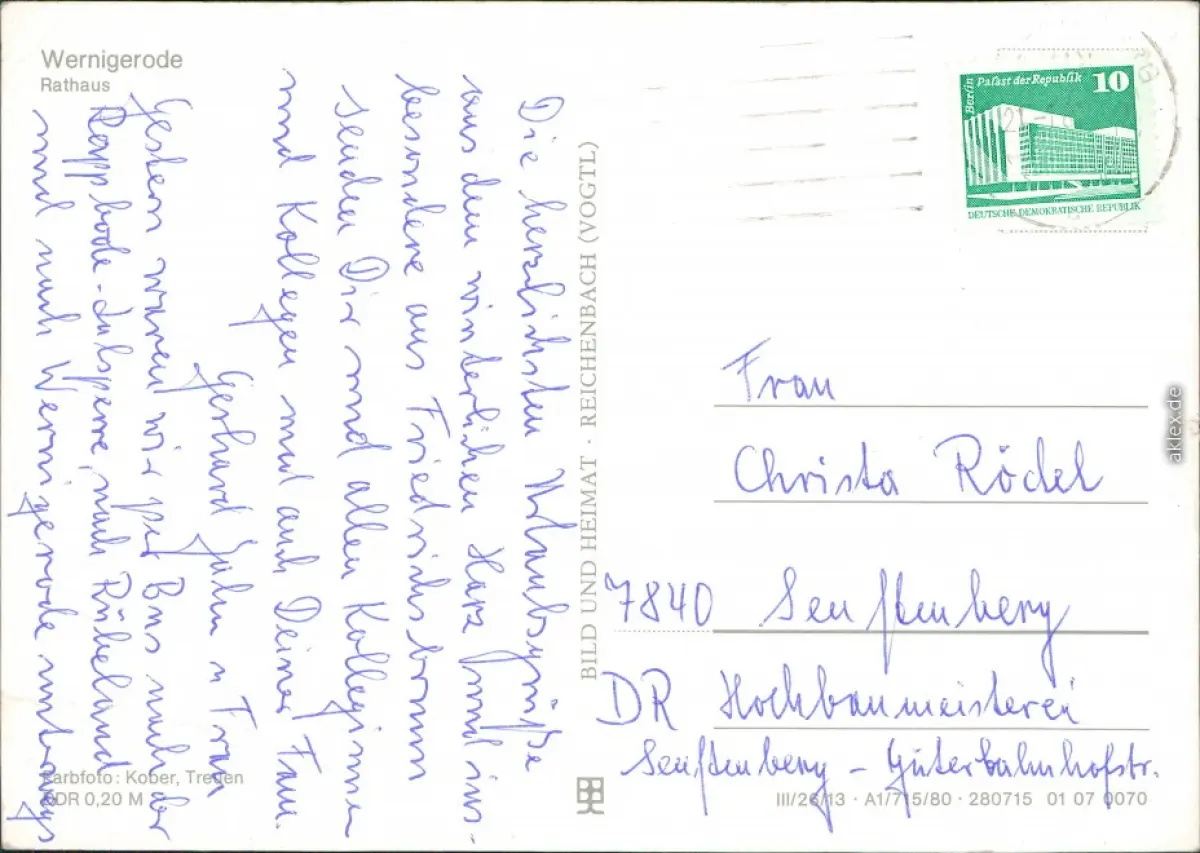 Wernigerode
Rathaus
Die herzlichsten Urlaubsgrüße
aus dem winterlichen Harz und ins-
besondere aus Friedrichsbrunn
senden Dir und allen Kolleginnen
und Kollegen und auch Deiner Fam.
Gerhard Jahn u Frau
Gestern waren wir per Bus nach der
Rappbode-Talsperre, nach Rübeland
und nach Wernigerode unterwegs
Farbfoto: Kober, Treuen
DDR 0,20 M
BILD UND HEIMAT · REICHENBACH (VOGTL)
Berlin Palast der Republik 10
DEUTSCHE DEMOKRATISCHE REPUBLIK
Frau
Christa Rödel
7840 Senftenberg
DR Hochbaumeisterei
Senftenberg – Güterbahnhofstr.
III/26/13 · A1/715/80 · 280715 01 07 0070
aklex.de